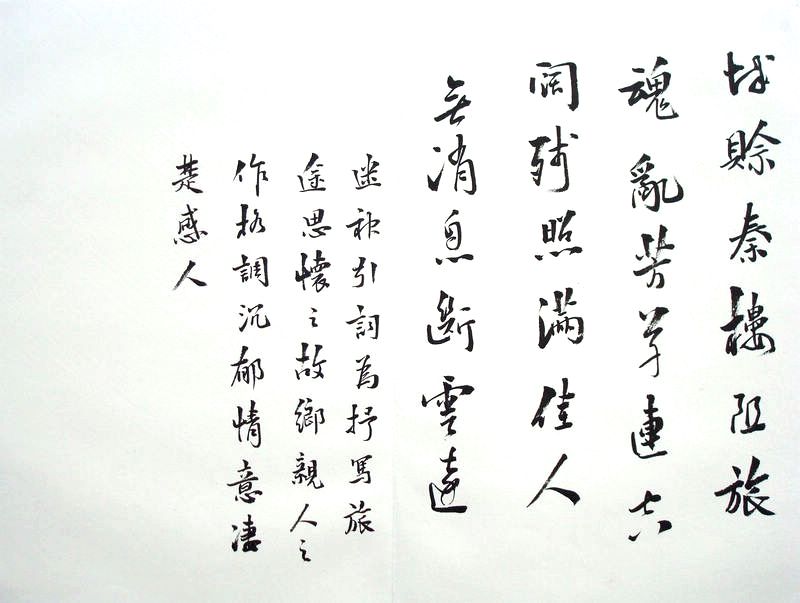 城賒秦樓阻旅
魂亂芳草連空
闊殘照滿佳人
無消息斷雲遠
迷神引詞為抒寫旅
途思懷之故鄉親人之
作格調沉郁情意凄
楚感人